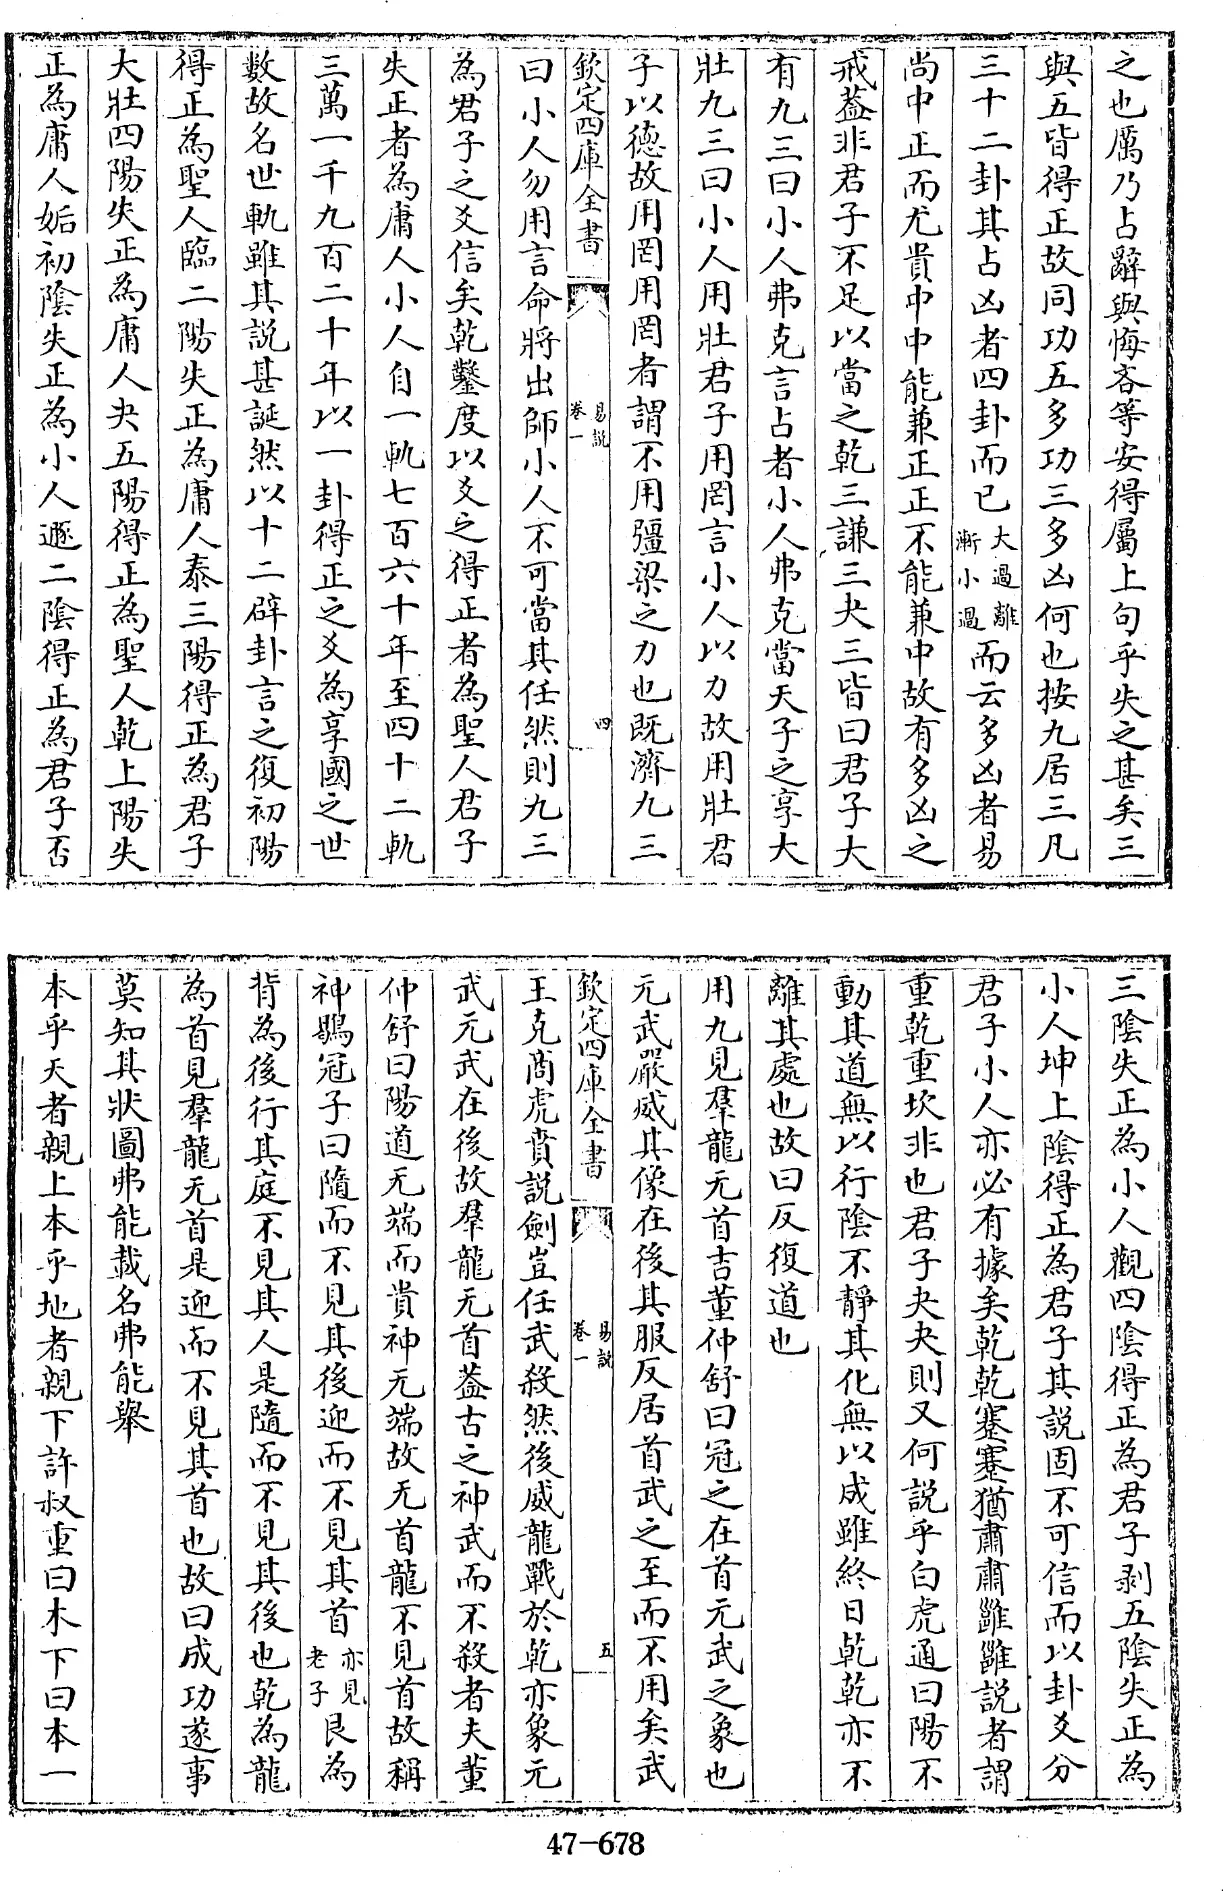 之也厲乃占辭與悔吝等安得屬上句乎失之甚矣三
與五皆得正故同功五多功三多凶何也按九居三凡
三十二卦其占凶者四卦而已大過離漸小過而云多凶者易
尚中正而尤貴中中能兼正正不能兼中故有多凶之
戒葢非君子不足以當之乾三謙三夬三皆曰君子大
有九三曰小人弗克言占者小人弗克當天子之享大
壯九三曰小人用壯君子用罔言小人以力故用壯君
子以德故用罔用罔者謂不用彊梁之力也既濟九三
欽定四庫全書
易說
卷一
四
曰小人勿用言命將出師小人不可當其任然則九三
為君子之爻信矣乾鑿度以爻之得正者為聖人君子
失正者為庸人小人自一軌七百六十年至四十二軌
三萬一千九百二十年以一卦得正之爻為享國之世
數故名世軌雖其說甚誕然以十二辟卦言之復初陽
得正為聖人臨二陽失正為庸人泰三陽得正為君子
大壯四陽失正為庸人夬五陽得正為聖人乾上陽失
正為庸人姤初陰失正為小人遯二陰得正為君子否
三陰失正為小人觀四陰得正為君子剥五陰失正為
小人坤上陰得正為君子其說固不可信而以卦爻分
君子小人亦必有據矣乾乾蹇蹇猶肅肅雝雝說者謂
重乾重坎非也君子夬夬則又何說乎白虎通曰陽不
動其道無以行陰不靜其化無以成雖終日乾乾亦不
離其處也故曰反復道也
用九見羣龍无首吉董仲舒曰冠之在首元武之象也
元武嚴威其像在後其服反居首武之至而不用矣武
欽定四庫全書
易說
卷一
五
王克商虎賁說劍豈任武殺然後威龍戰於乾亦象元
武元武在後故羣龍无首葢古之神武而不殺者夫董
仲舒曰陽道无端而貴神无端故无首龍不見首故稱
神鶡冠子曰隨而不見其後迎而不見其首亦見老子艮為
背為後行其庭不見其人是隨而不見其後也乾為龍
為首見羣龍无首是迎而不見其首也故曰成功遂事
莫知其狀圖弗能載名弗能舉
本乎天者親上本乎地者親下許叔重曰木下曰本一
47-678